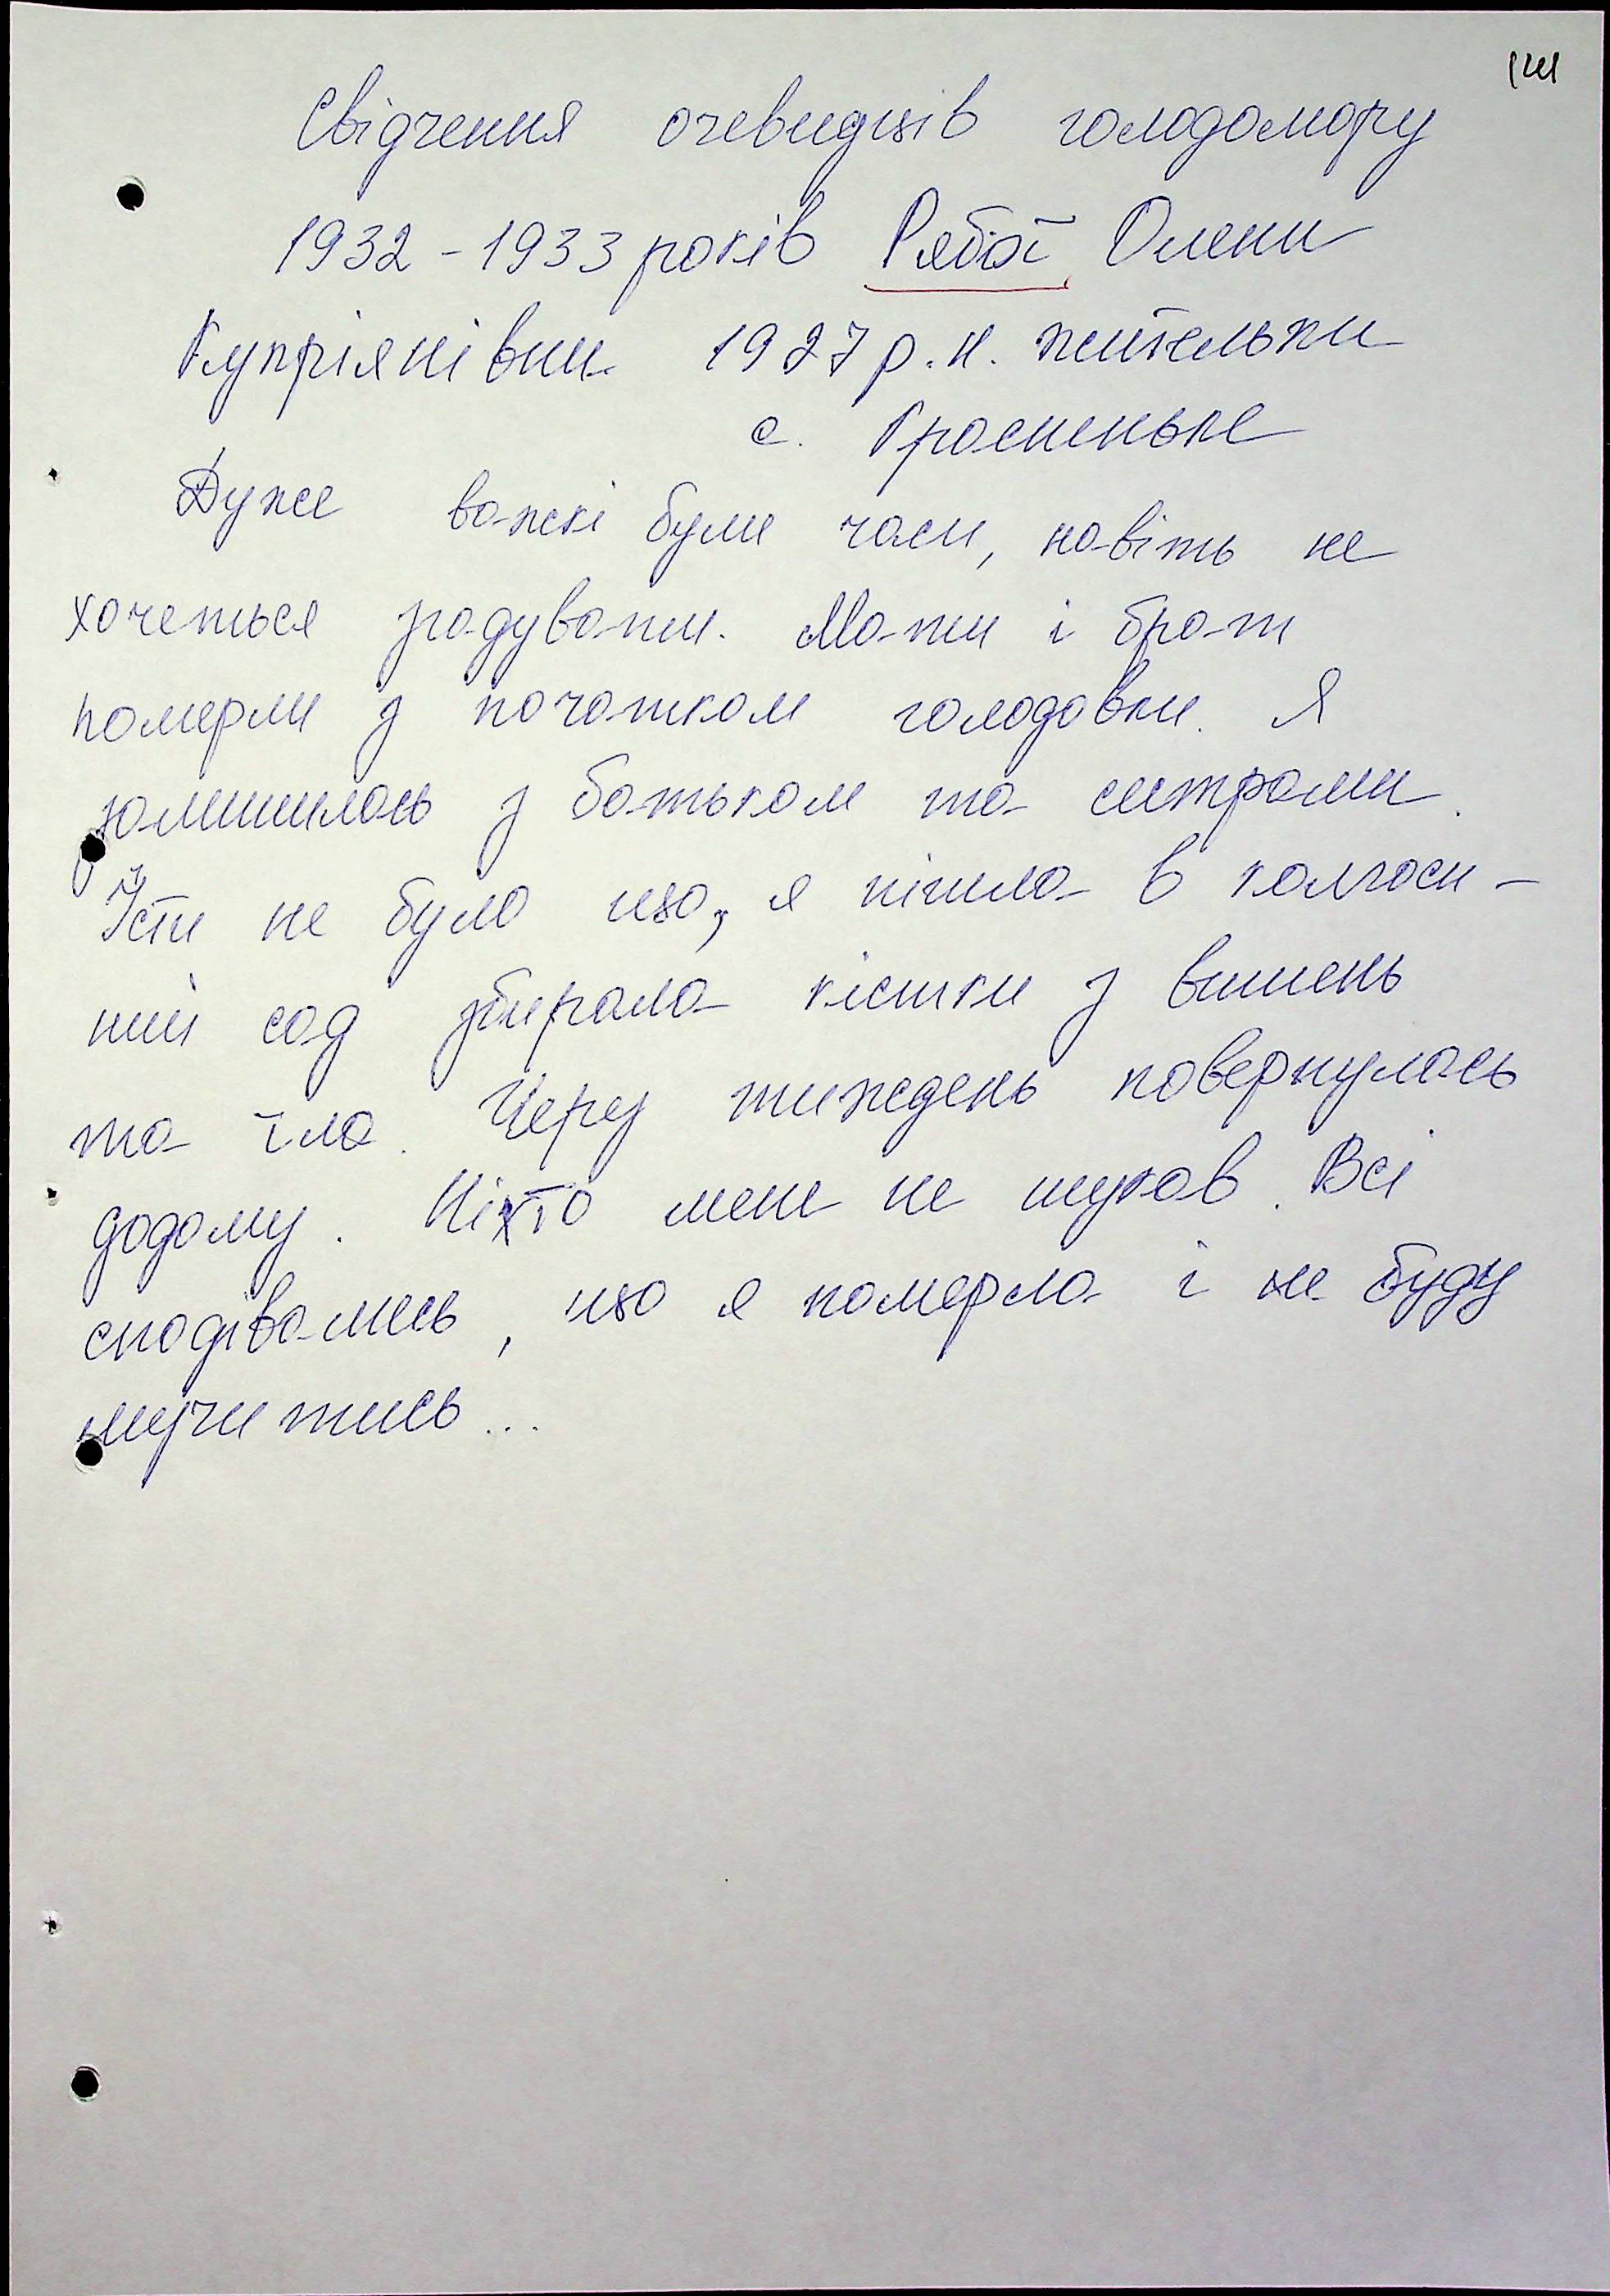 141
Свідчення очевидців голодомору
1932 - 1933 років Рябої Олени
Купріянівни 1927 р. н. жительки
с. Красненьке
Дуже важкі були часи, навіть не
хочеться згадувати. Мати і брат
померли з початком голодовки. Я
залишилась з батьком та сестрами.
Їсти не було що, я пішла в колгосп-
ний сад збирала кістки з вишень
та їла. Через тиждень повернулась
додому. Ніхто мене не шукав. Всі
сподівались, що я померла і не буду
мучитись...